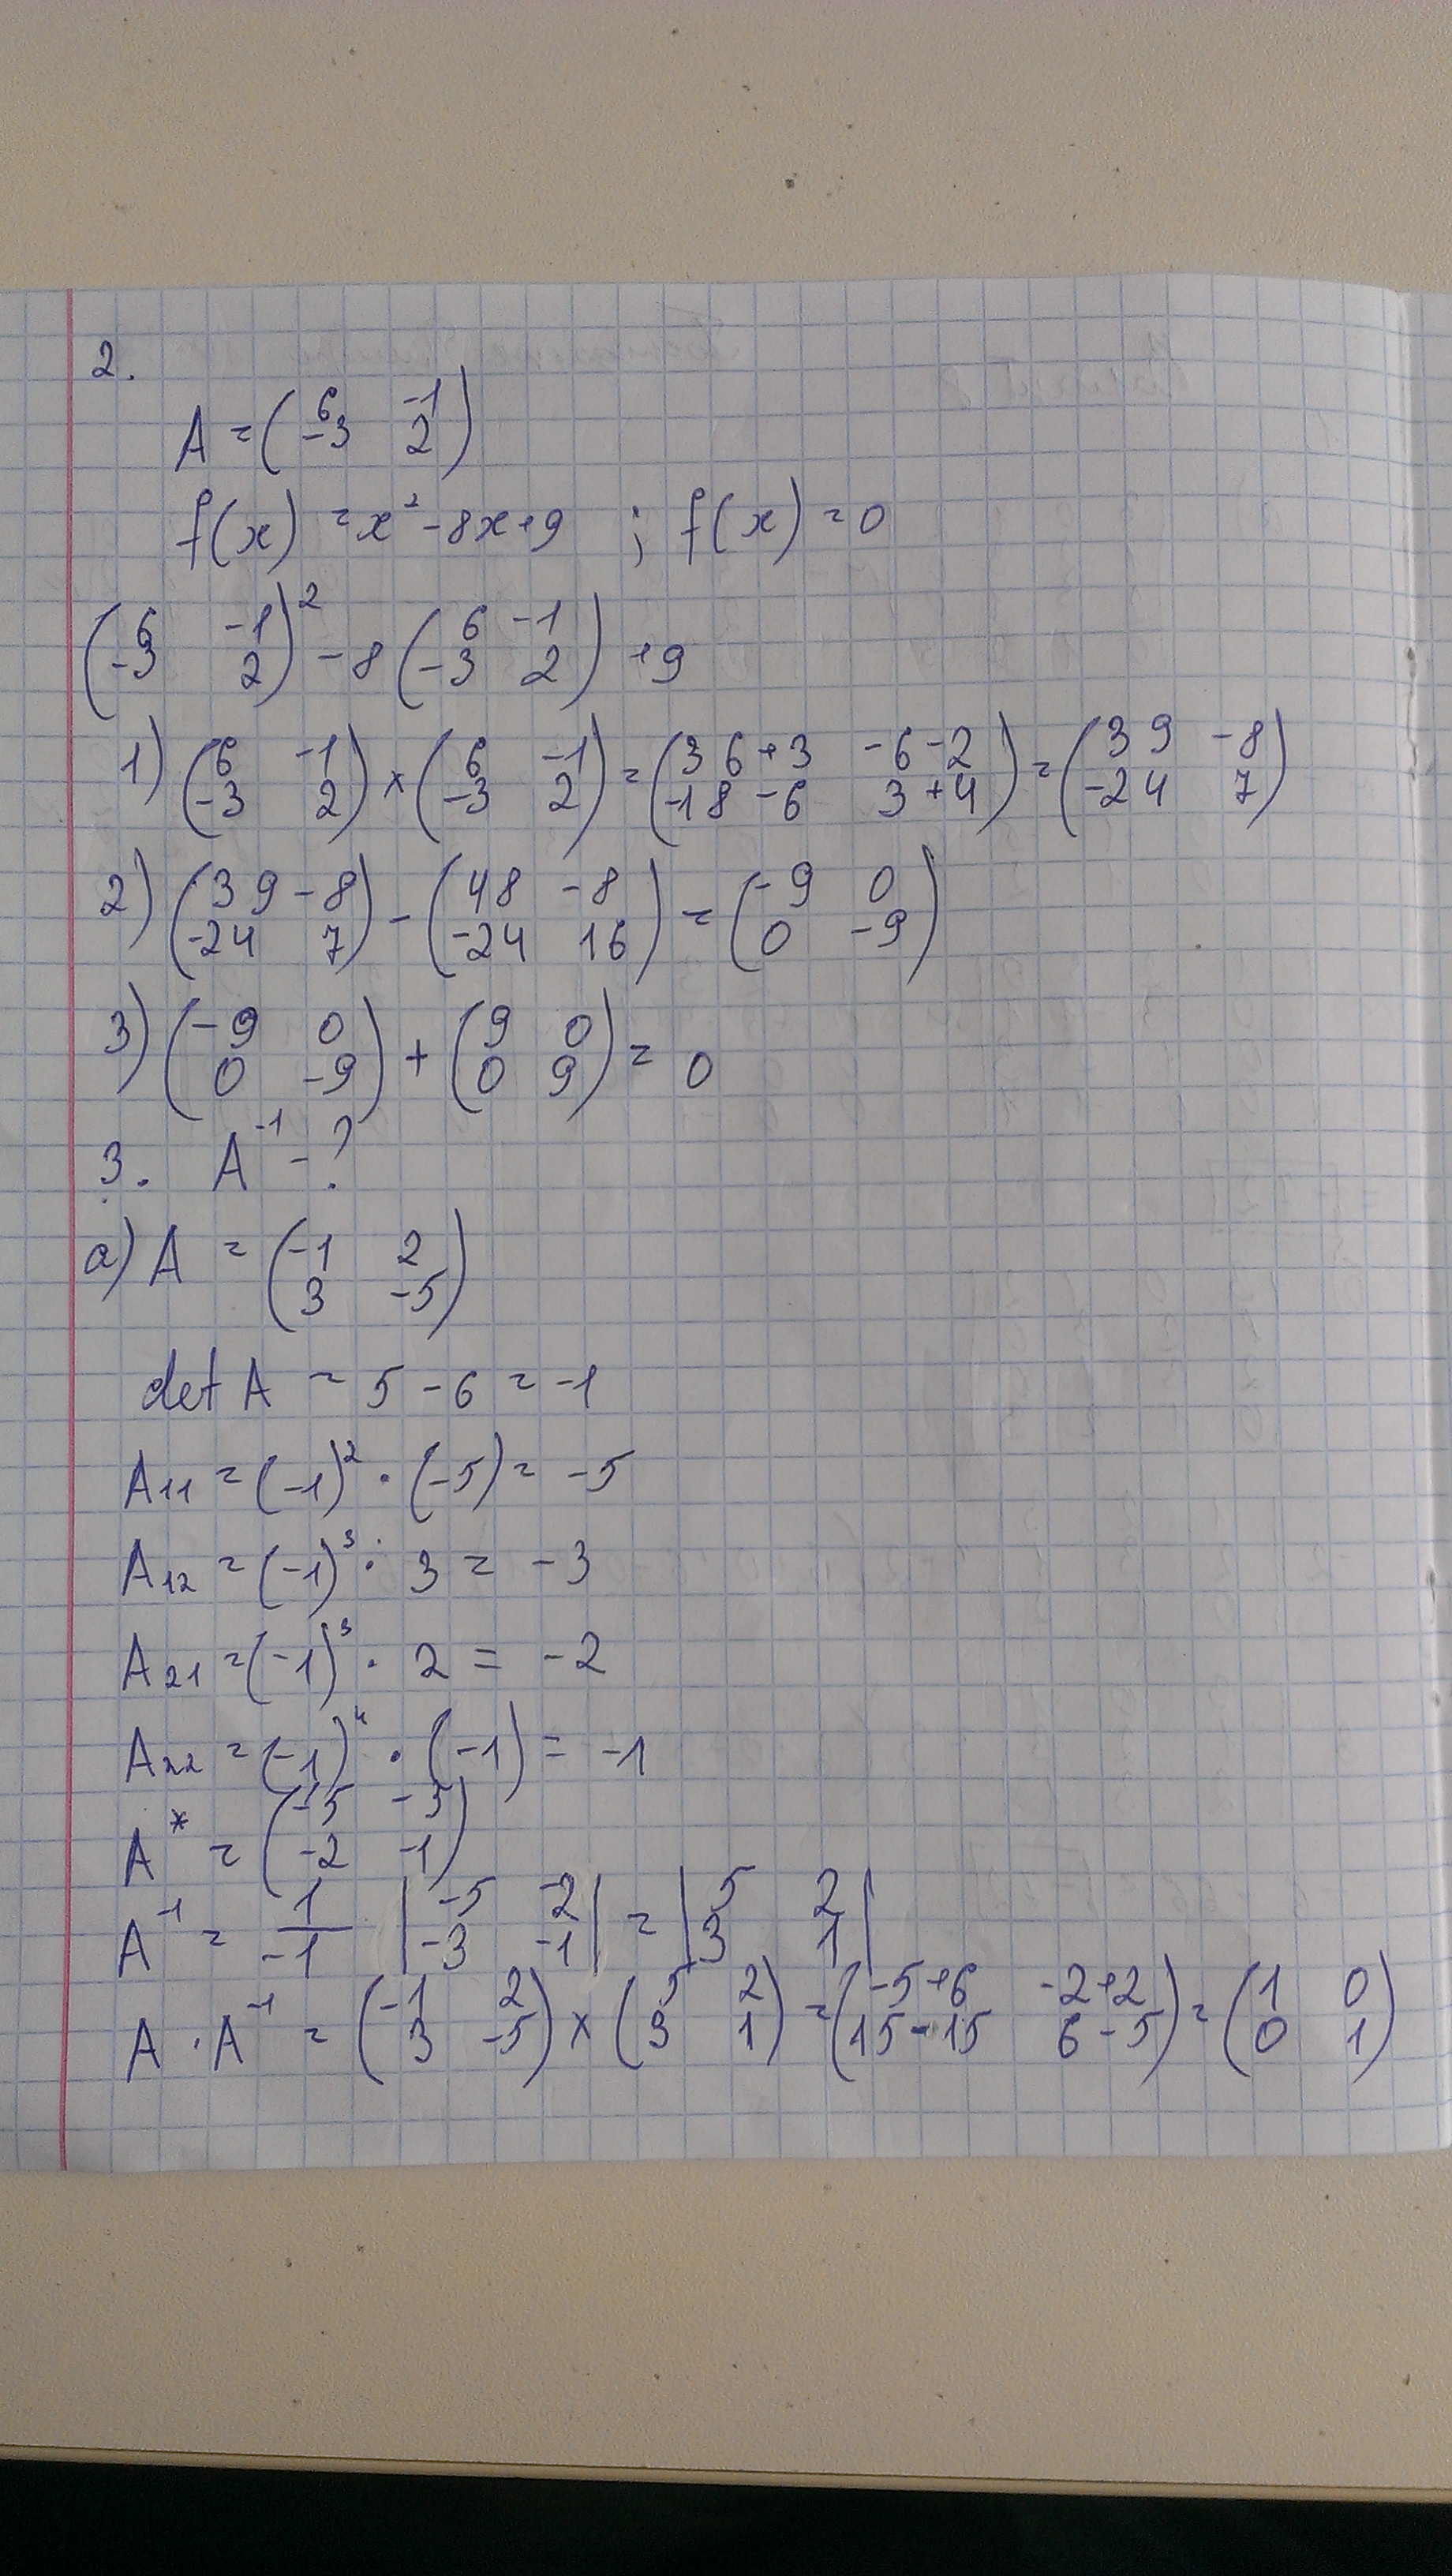 2.
A = (6 -1; -3 2)
f(x) = x² - 8x + 9 ; f(x) = 0
(6 -1; -3 2)² - 8 (6 -1; -3 2) + 9
1) (6 -1; -3 2) × (6 -1; -3 2) = (36+3 -6-2; -18-6 3+4) = (39 -8; -24 7)
2) (39 -8; -24 7) - (48 -8; -24 16) = (-9 0; 0 -9)
3) (-9 0; 0 -9) + (9 0; 0 9) = 0
3. A⁻¹ - ?
а) A = (-1 2; 3 -5)
det A = 5 - 6 = -1
A₁₁ = (-1)² · (-5) = -5
A₁₂ = (-1)³ · 3 = -3
A₂₁ = (-1)³ · 2 = -2
A₂₂ = (-1)⁴ · (-1) = -1
A* = (-5 -3; -2 -1)
A⁻¹ = 1/-1 |-5 -2; -3 -1| = |5 2; 3 1|
A · A⁻¹ = (-1 2; 3 -5) × (5 2; 3 1) = (-5+6 -2+2; 15-15 6-5) = (1 0; 0 1)